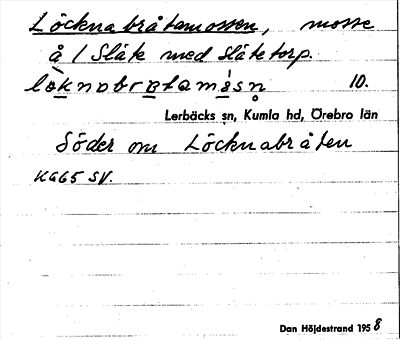 Löcknabråtamossen, mosse
å 1 Slåte med Slåtetorp.
10.
Lerbäcks sn, Kumla hd, Örebro län
Söder om Löcknabråten
KG65 SV.
Dan Höjdestrand 1958